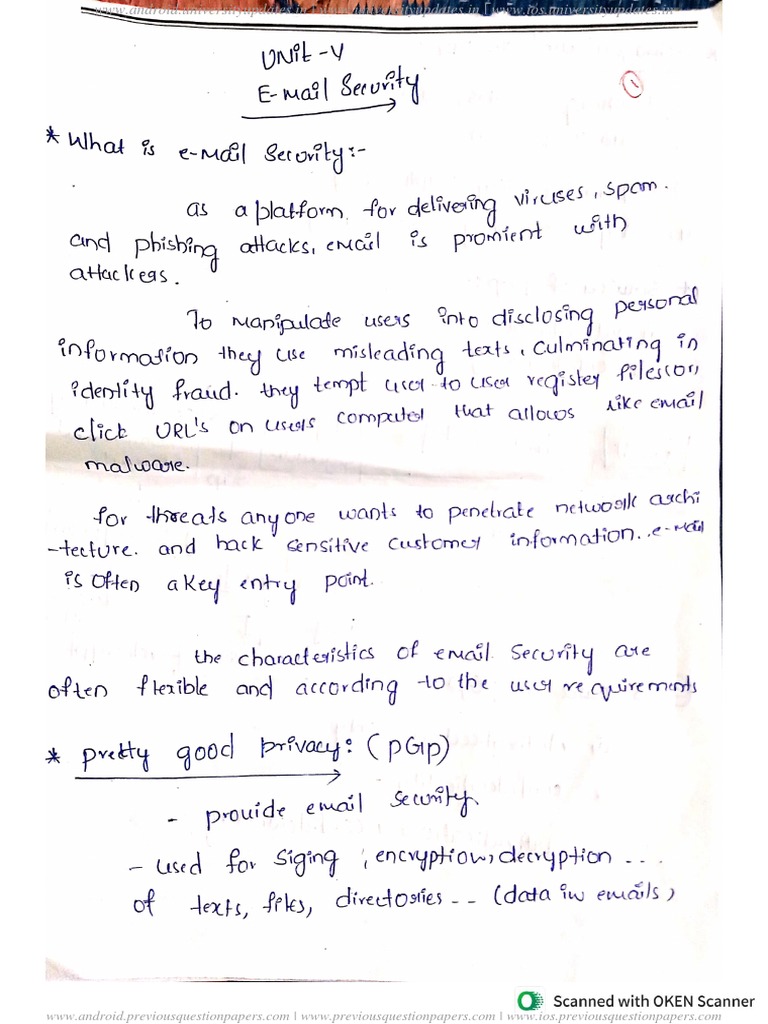 www.android.universityupdates.in | www.universityupdates.in | www.ios.universityupdates.in
UNit-V
E-mail Security
1
* What is e-mail Security:-
as a platform for delivering viruses, spam.
and phishing attacks, email is promient with
attackers.
To manipulate users into disclosing personal
information they use misleading texts, culminating in
identity fraud. they tempt user to user register files(or)
click URL's on users computer that allows like email
malware.
for threats anyone wants to penetrate network archi
-tecture. and hack sensitive customer information. e-mail
is often a key entry point.
the characteristics of email Security are
often flexible and according to the user requirements
* pretty good privacy: (pGp)
- provide email security.
- used for siging, encryption, decryption ...
of texts, files, directories -- (data in emails)
Scanned with OKEN Scanner
www.android.previousquestionpapers.com | www.previousquestionpapers.com | www.ios.previousquestionpapers.com